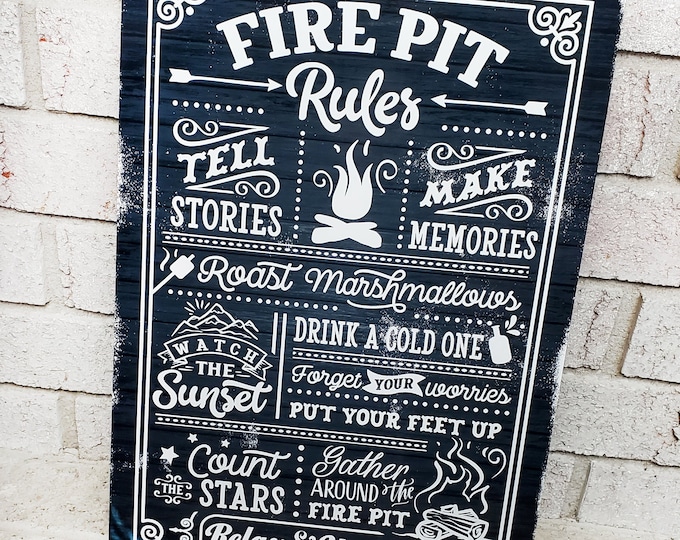 FIRE PIT
Rules
TELL
STORIES
MAKE
MEMORIES
Roast Marshmallows
WATCH
THE
Sunset
DRINK A COLD ONE
Forget YOUR worries
PUT YOUR FEET UP
Count
THE STARS
Gather
AROUND the
FIRE PIT